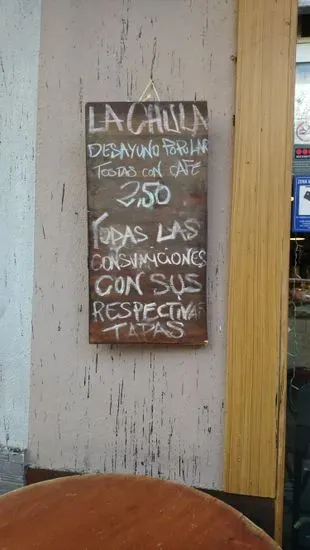 LA CHULA
DESAYUNO POPULAR
TOSTAS CON CAFE
2,50
TODAS LAS
CONSUMICIONES
CON SUS
RESPECTIVAS
TAPAS